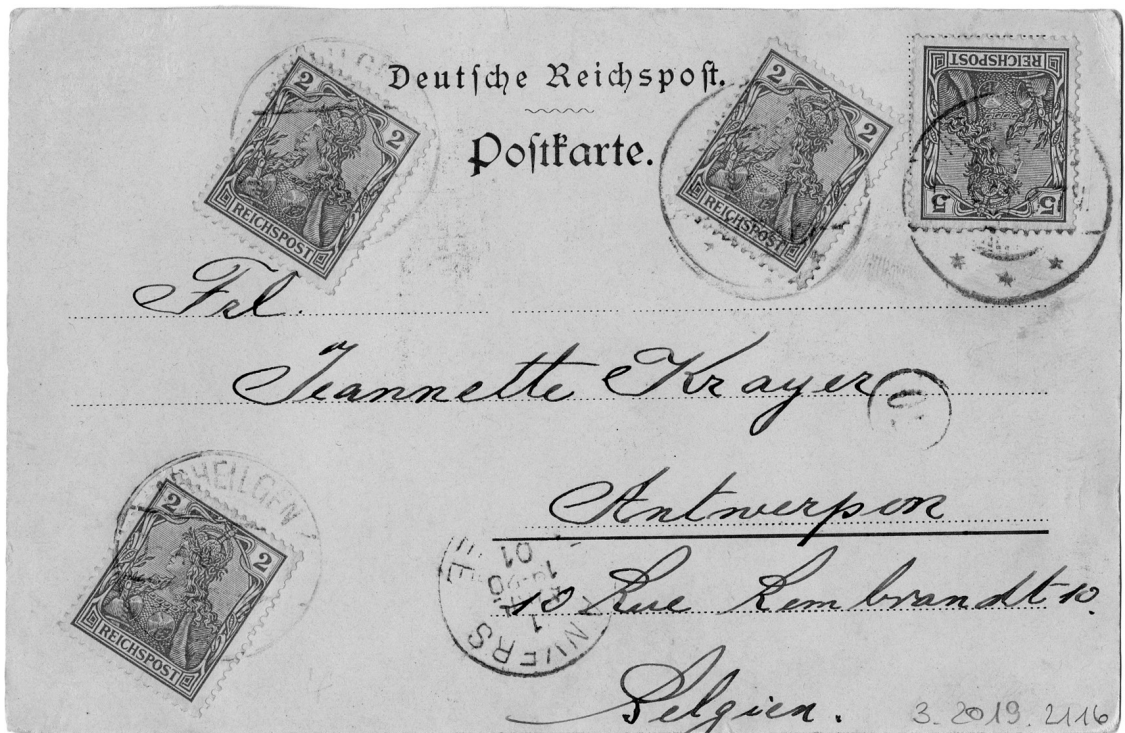 Deutſche Reichspoſt.
Poſtkarte.
2 2
REICHSPOST
2 2
REICHSPOST
5 5
REICHSPOST
Frl.
Jeannette Krayer
Antwerpen
10 Rue Rembrandt 10.
Belgien.
HEILGEN
2 2
REICHSPOST
ANVERS
1
01
3.2019.2116